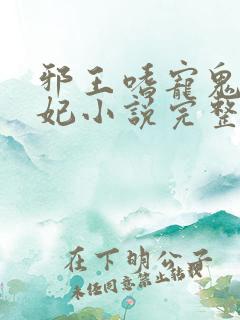 邪王嗜寵鬼
妃小說完整
在下明公子
未任同意禁止轉載